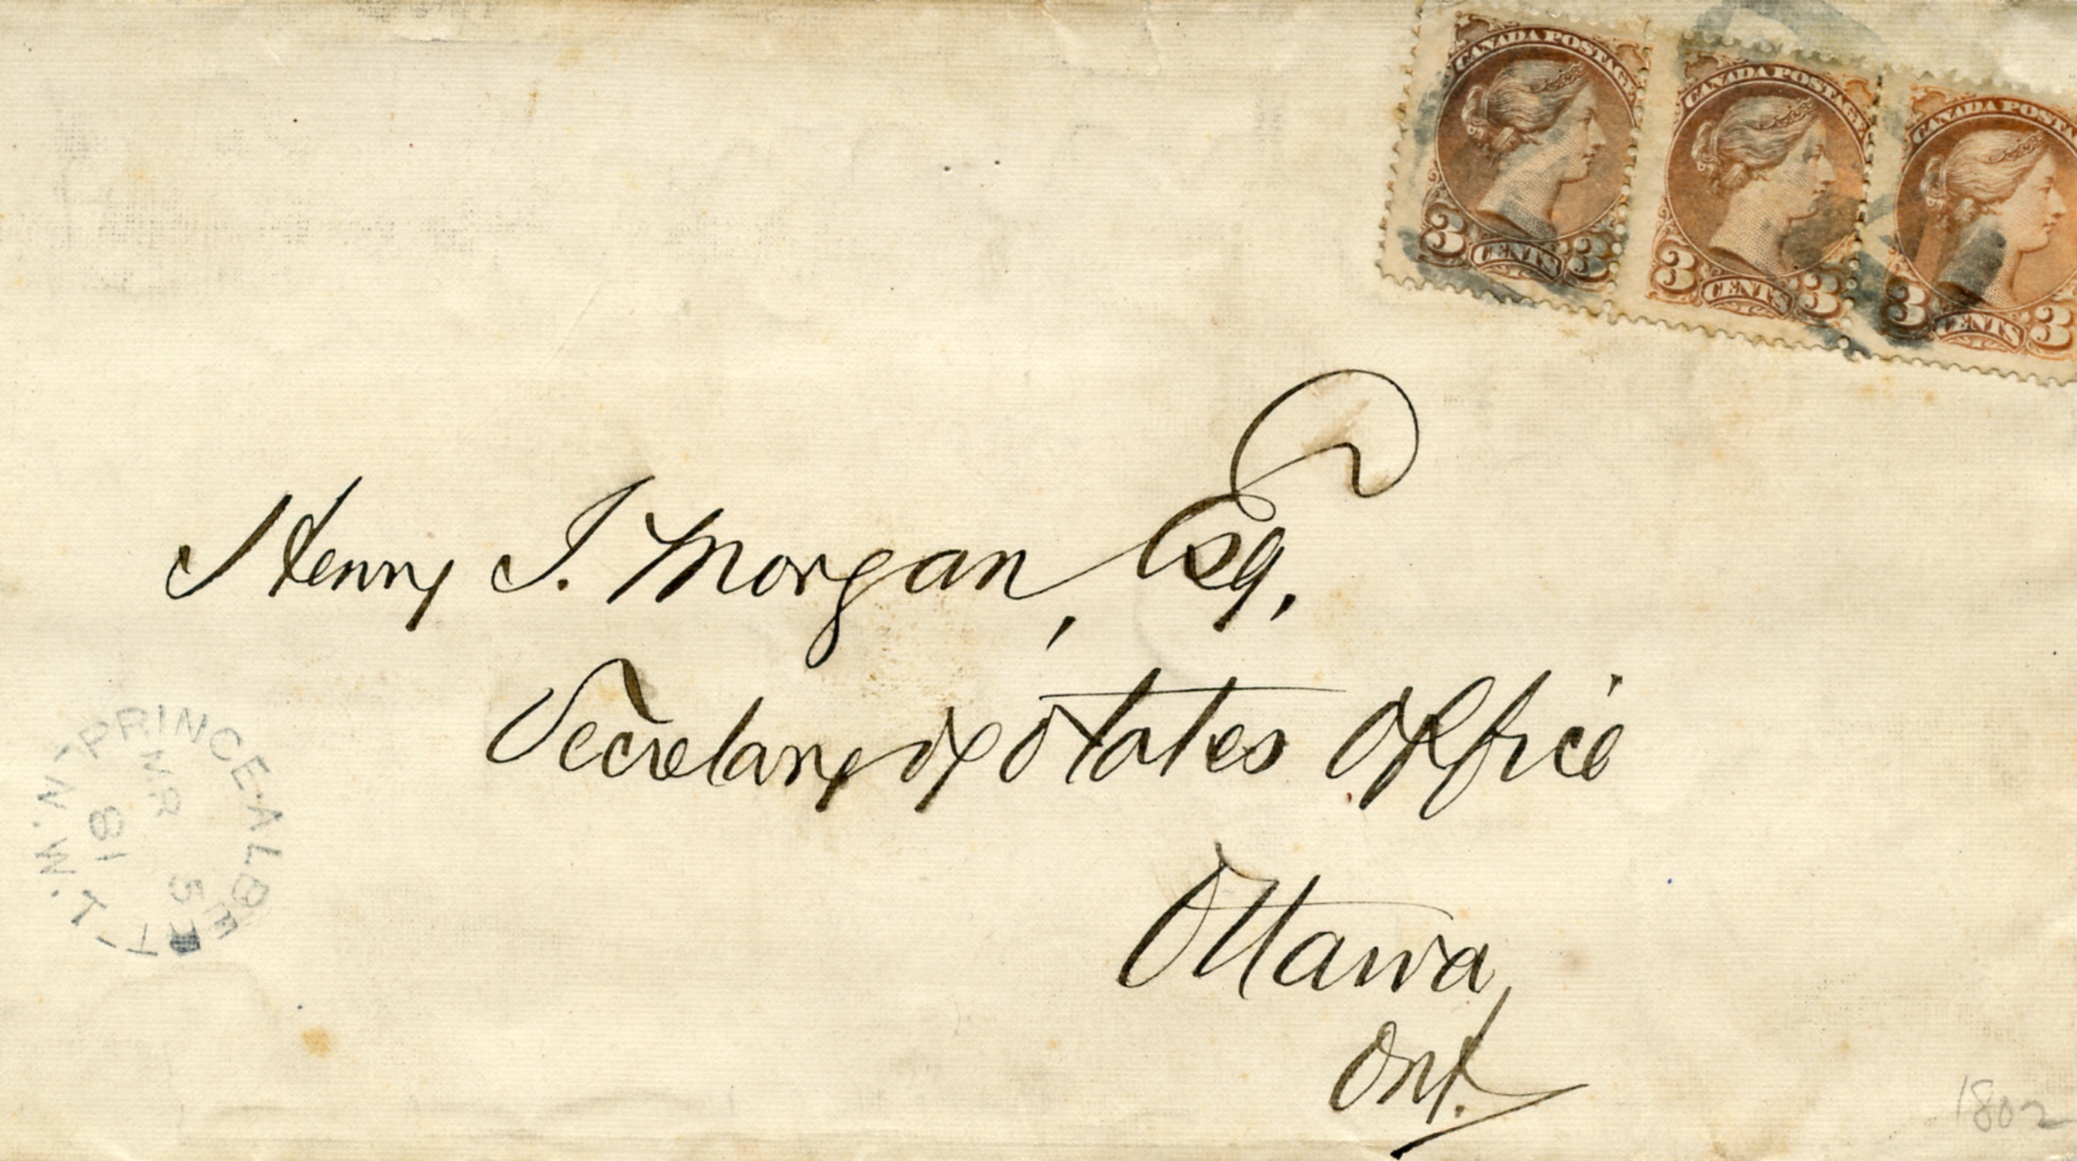 CANADA POSTAGE
3 CENTS 3
CANADA POSTAGE
3 CENTS 3
CANADA POSTA
3 CENTS 3
Henry J. Morgan, Esq,
Secretary of States Office
Ottawa
Ont.
PRINCE-ALBERT-N.W.T.
MR 5
81
1802